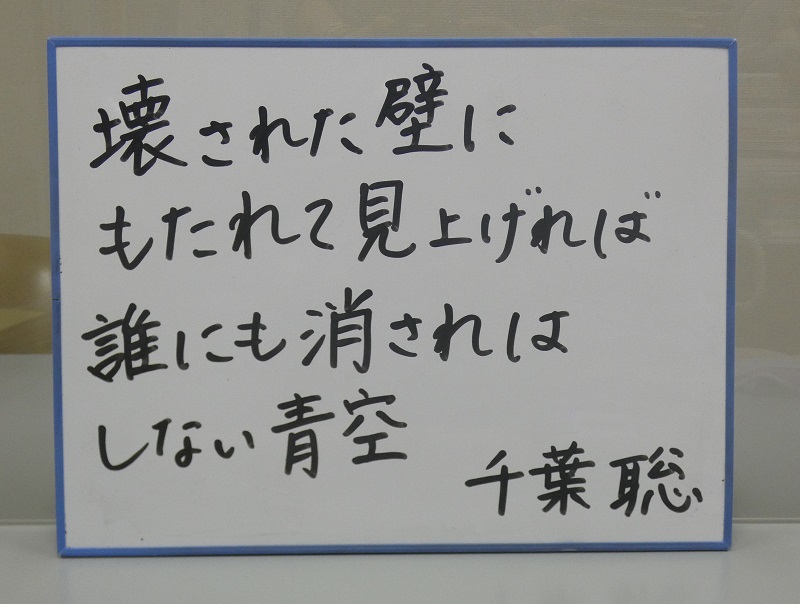 壊された壁に
もたれて見上げれば
誰にも消されは
しない青空
千葉聡